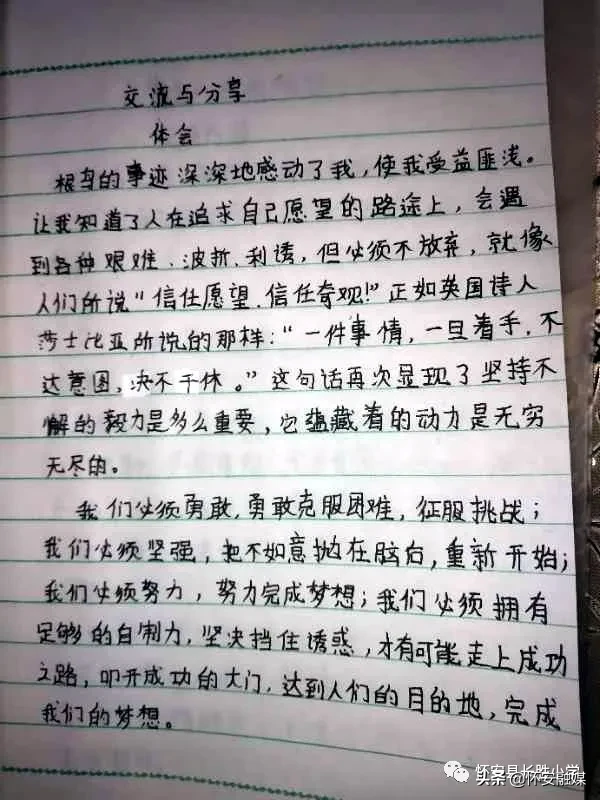 交流与分享
体会
根鸟的事迹深深地感动了我，使我受益匪浅。
让我知道了人在追求自己愿望的路途上，会遇
到各种艰难、波折、利诱，但必须不放弃，就像
人们所说“信任愿望、信任奇观！”正如英国诗人
莎士比亚所说的那样：“一件事情，一旦着手，不
达意图，决不干休。”这句话再次显现了坚持不
懈的毅力是多么重要，它蕴藏着的动力是无穷
无尽的。
我们必须勇敢，勇敢克服困难，征服挑战；
我们必须坚强，把不如意抛在脑后，重新开始；
我们必须努力，努力完成梦想；我们必须拥有
足够的自制力，坚决挡住诱惑，才有可能走上成功
之路，叩开成功的大门，达到人们的目的地，完成
我们的梦想。
怀安县长胜小学
头条@怀安融媒